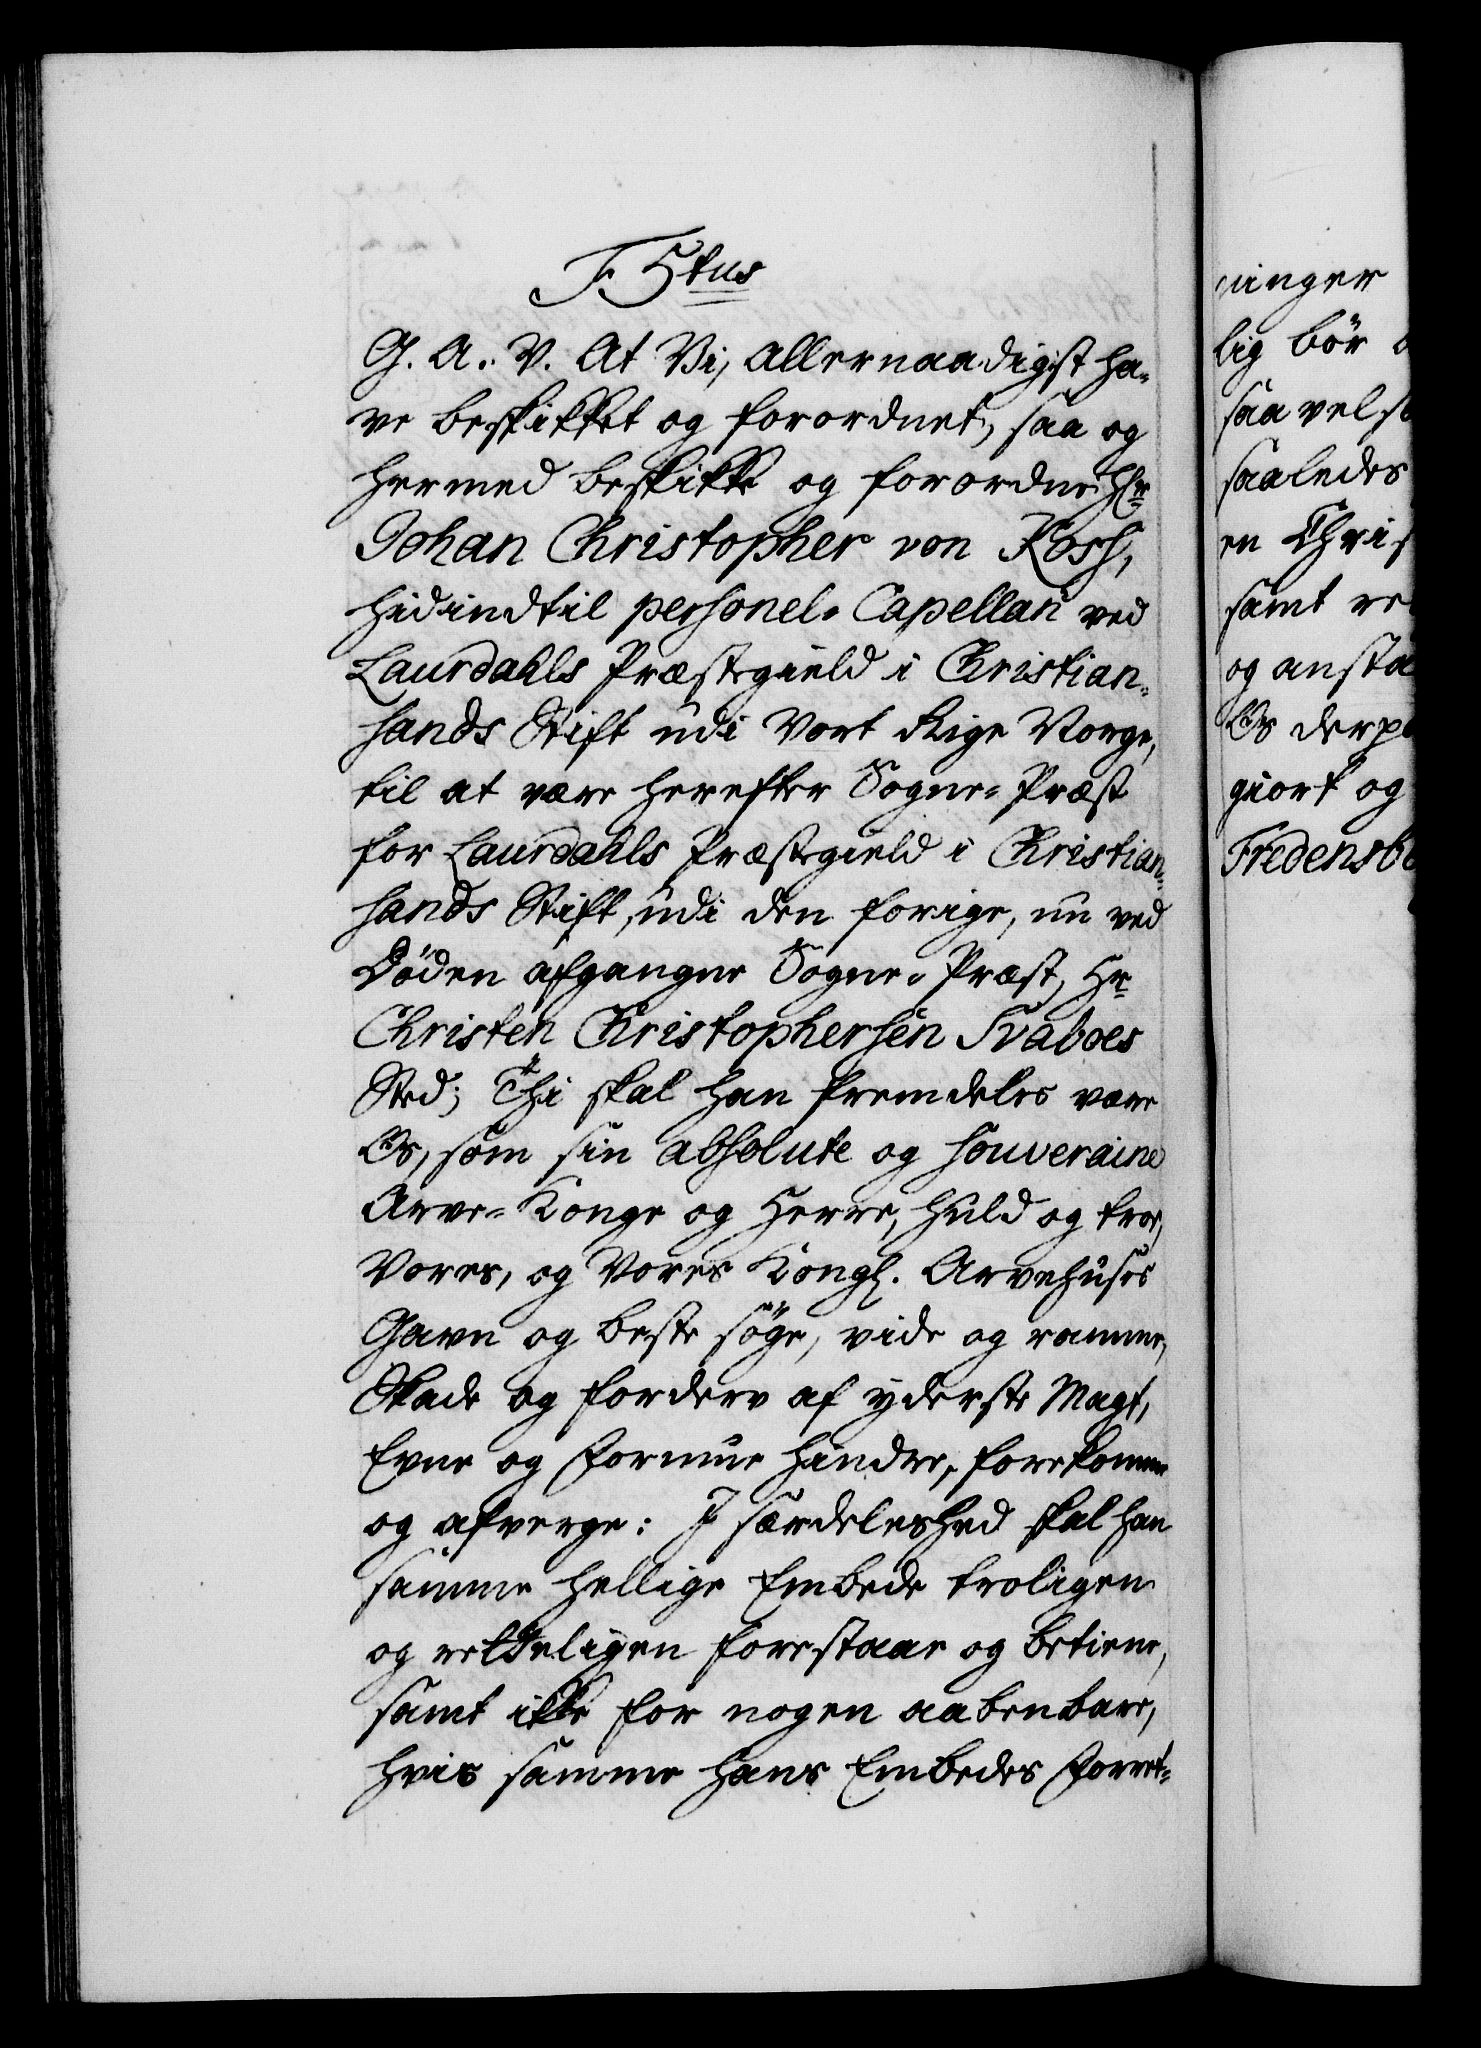 F. 5tus
G. A. V. At Vi, allernaadigst ha-
ve beskikket og forordnet, saa og
hermed beskikke og forordne Hr
Johan Christopher von Koss,
hidindtil personel-Capellan ved
Laurdahls Præstegield i Christian-
sands Stift udi Vort Rige Norge,
til at være herefter Sogne-Præst
for Laurdahls Præstegield i Christian-
sands Stift, udi den forige, nu ved
Döden afgangne Sogne-Præst, Hr
Christen Christophersen Svaboes
Sted; Thi skal han fremdeles være
Os, som sin absolute og souveraine
Arve-Konge og Herre, huld og troe,
Vores, og Vores Kongl. Arvehuses
Gavn og beste söge, vide og ramme,
Skade og forderv af yderste Magt,
Evne og Formue hindre, forekomme
og afverge: I særdeleshed skal han
samme hellige Embede troligen
og retteligen forestaae og betiene,
samt ikke for nogen aabenbare,
hvis samme hans Embedes Forret-
ninger
lig bör
saavel s
saaledes
en Chris
samt re
og ansta
Os derp
giort og
Fredensb